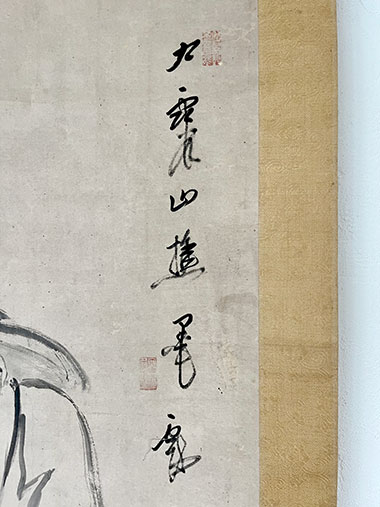 九霞山樵墨戲